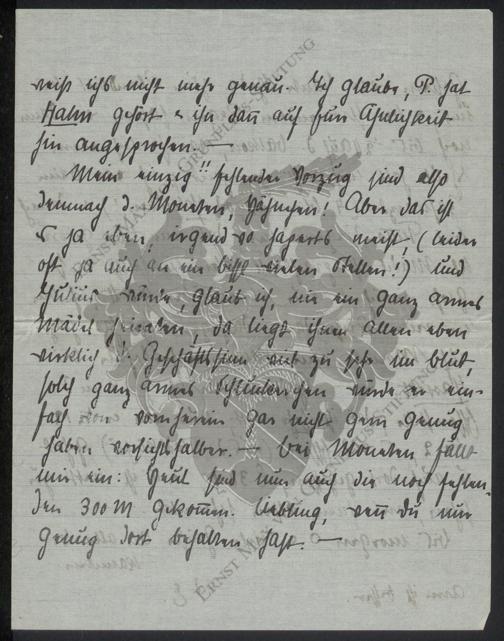 weiß ichs nicht mehr genau. Ich glaube, P. hat
Hahn gehört & ihn dann auf eine Ähnlichkeit
hin angesprochen. —
Mein einzig!! fehlender Vorzug sind also
demnach d. Moneten, Hähnchen! Aber das ist
es ja eben, irgend wo haperts meist, (leider
oft ja auch an ein bissl vielen Stellen!) und
Julius würde, glaub ich, nie ein ganz armes
Mädel heiraten, da liegt ihnen allen eben
wirklich d. Geschäftssinn viel zu sehr im Blut,
solch ganz armes würde er ein-
fach von vornherein gar nicht gern genug
haben vorsichtshalber. — Bei Moneten fällt
mir ein: Heut sind nun auch die noch fehlen-
den 300 M gekommen. Liebling, wenn Du nur
genug dort behalten hast. —
ERNST MAX VON GRUNELIUS-STIFTUNG